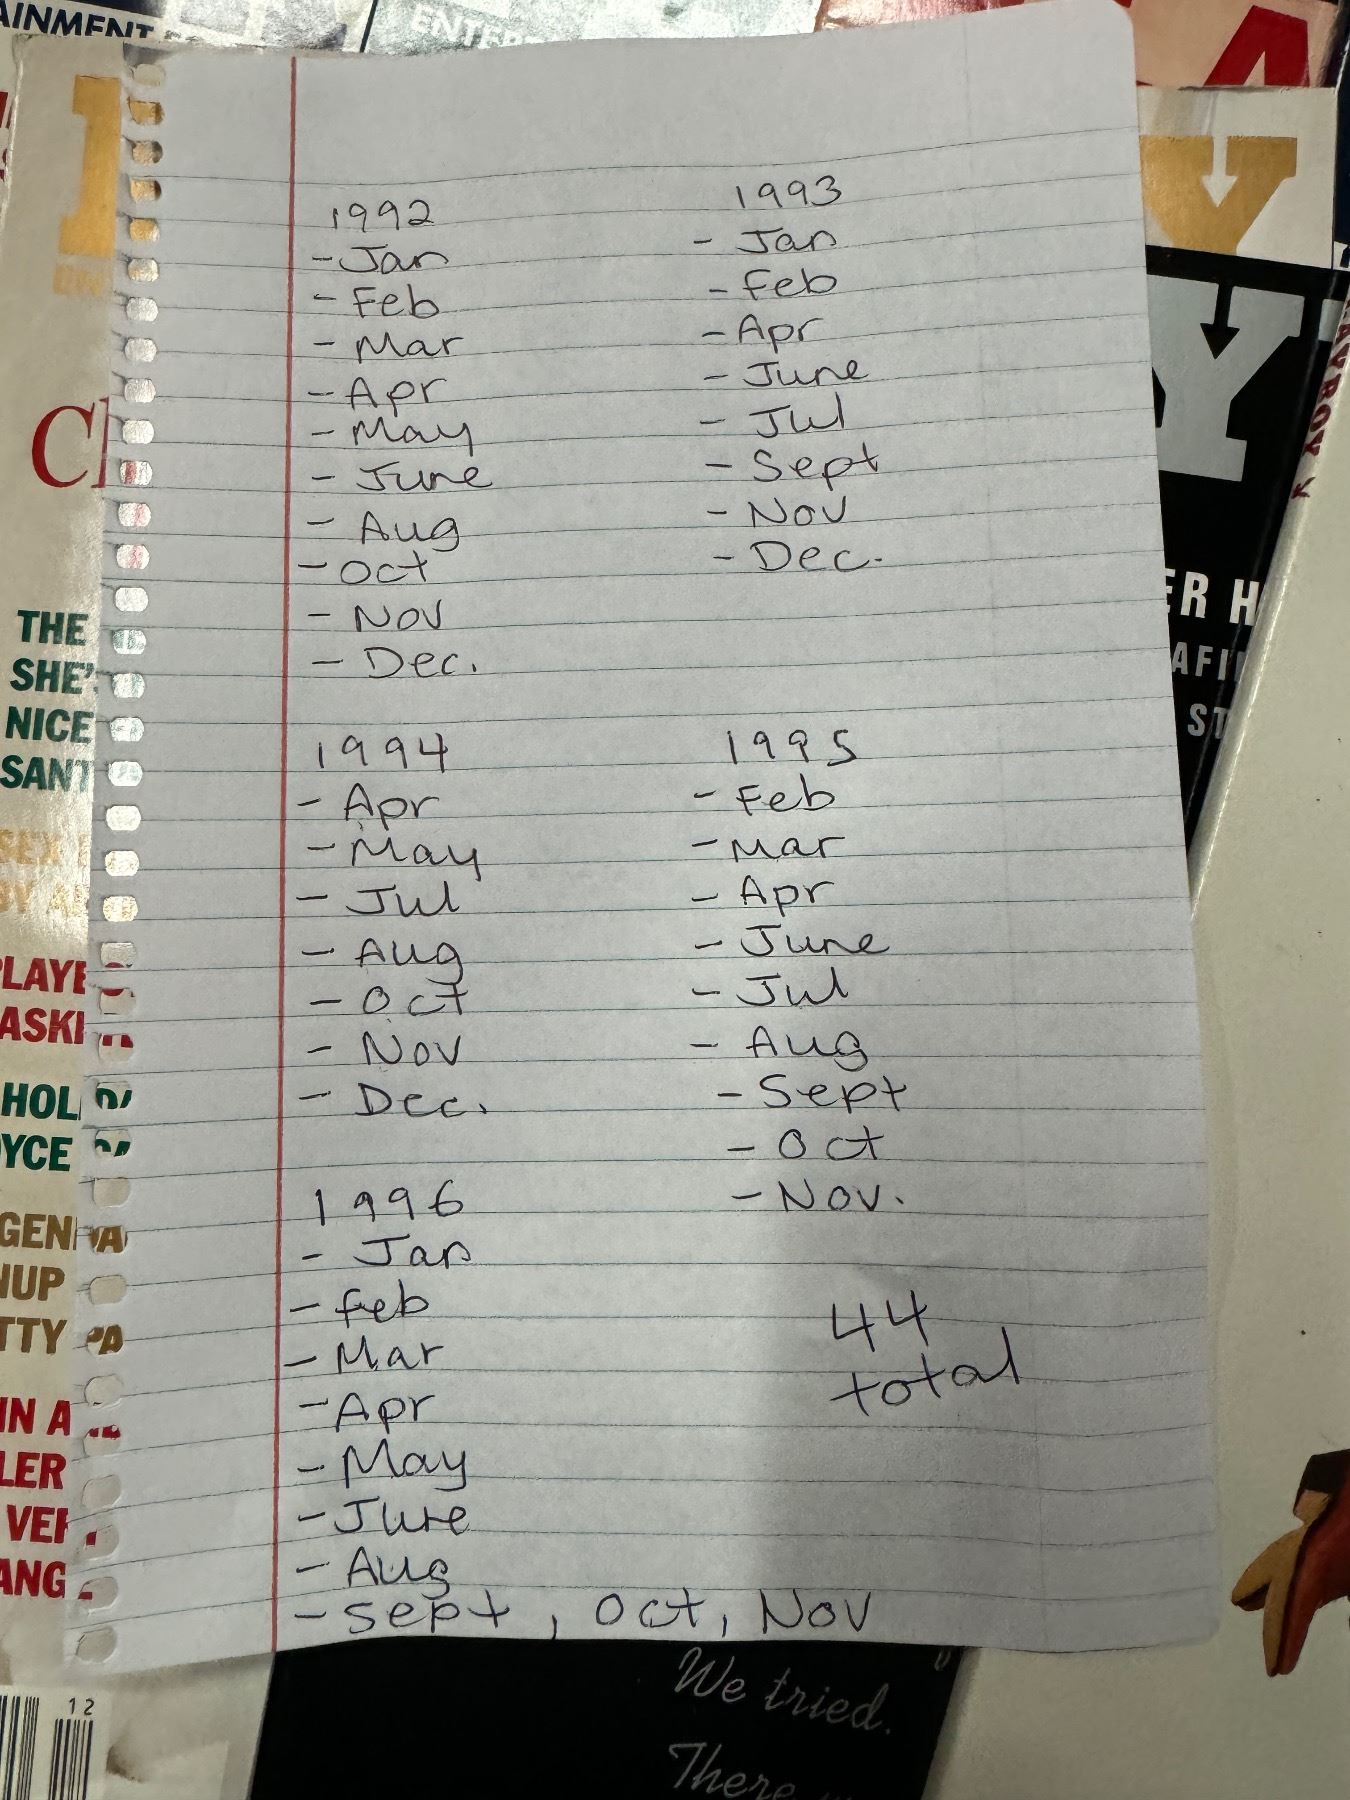 AINMENT
ENTER
1992
- Jan
- Feb
- Mar
- Apr
- May
- June
- Aug
- Oct
- Nov
- Dec.
1993
- Jan
- Feb
- Apr
- June
- Jul
- Sept
- Nov
- Dec.
1994
- Apr
- May
- Jul
- Aug
- Oct
- Nov
- Dec.
1995
- Feb
- Mar
- Apr
- June
- Jul
- Aug
- Sept
- Oct
- Nov.
1996
- Jan
- Feb
- Mar
- Apr
- May
- June
- Aug
- Sept, Oct, Nov
44
total
THE
SHE'
NICE
SANT
SEX
PLAYB
ASKI
HOL
OYCE
GEN
NUP
TTY PA
IN A
LER
VER
ANG
12
Y
Y
ER H
AFI
ST
We tried.
There